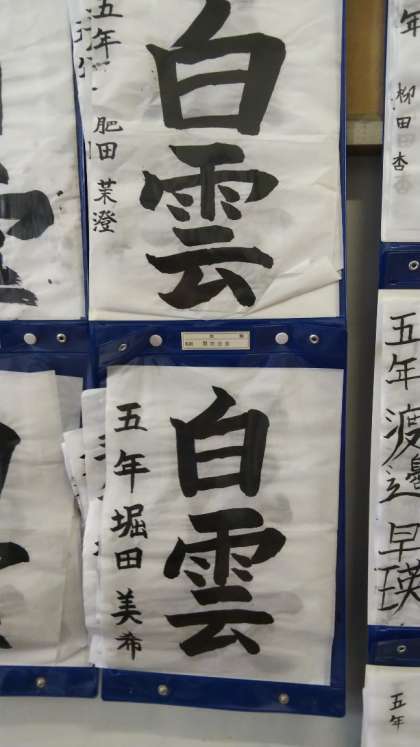 白雲
五年 肥田 茉澄
白雲
五年 堀田 美希
年 柳田 杏
五年 渡邉 早瑛
五年